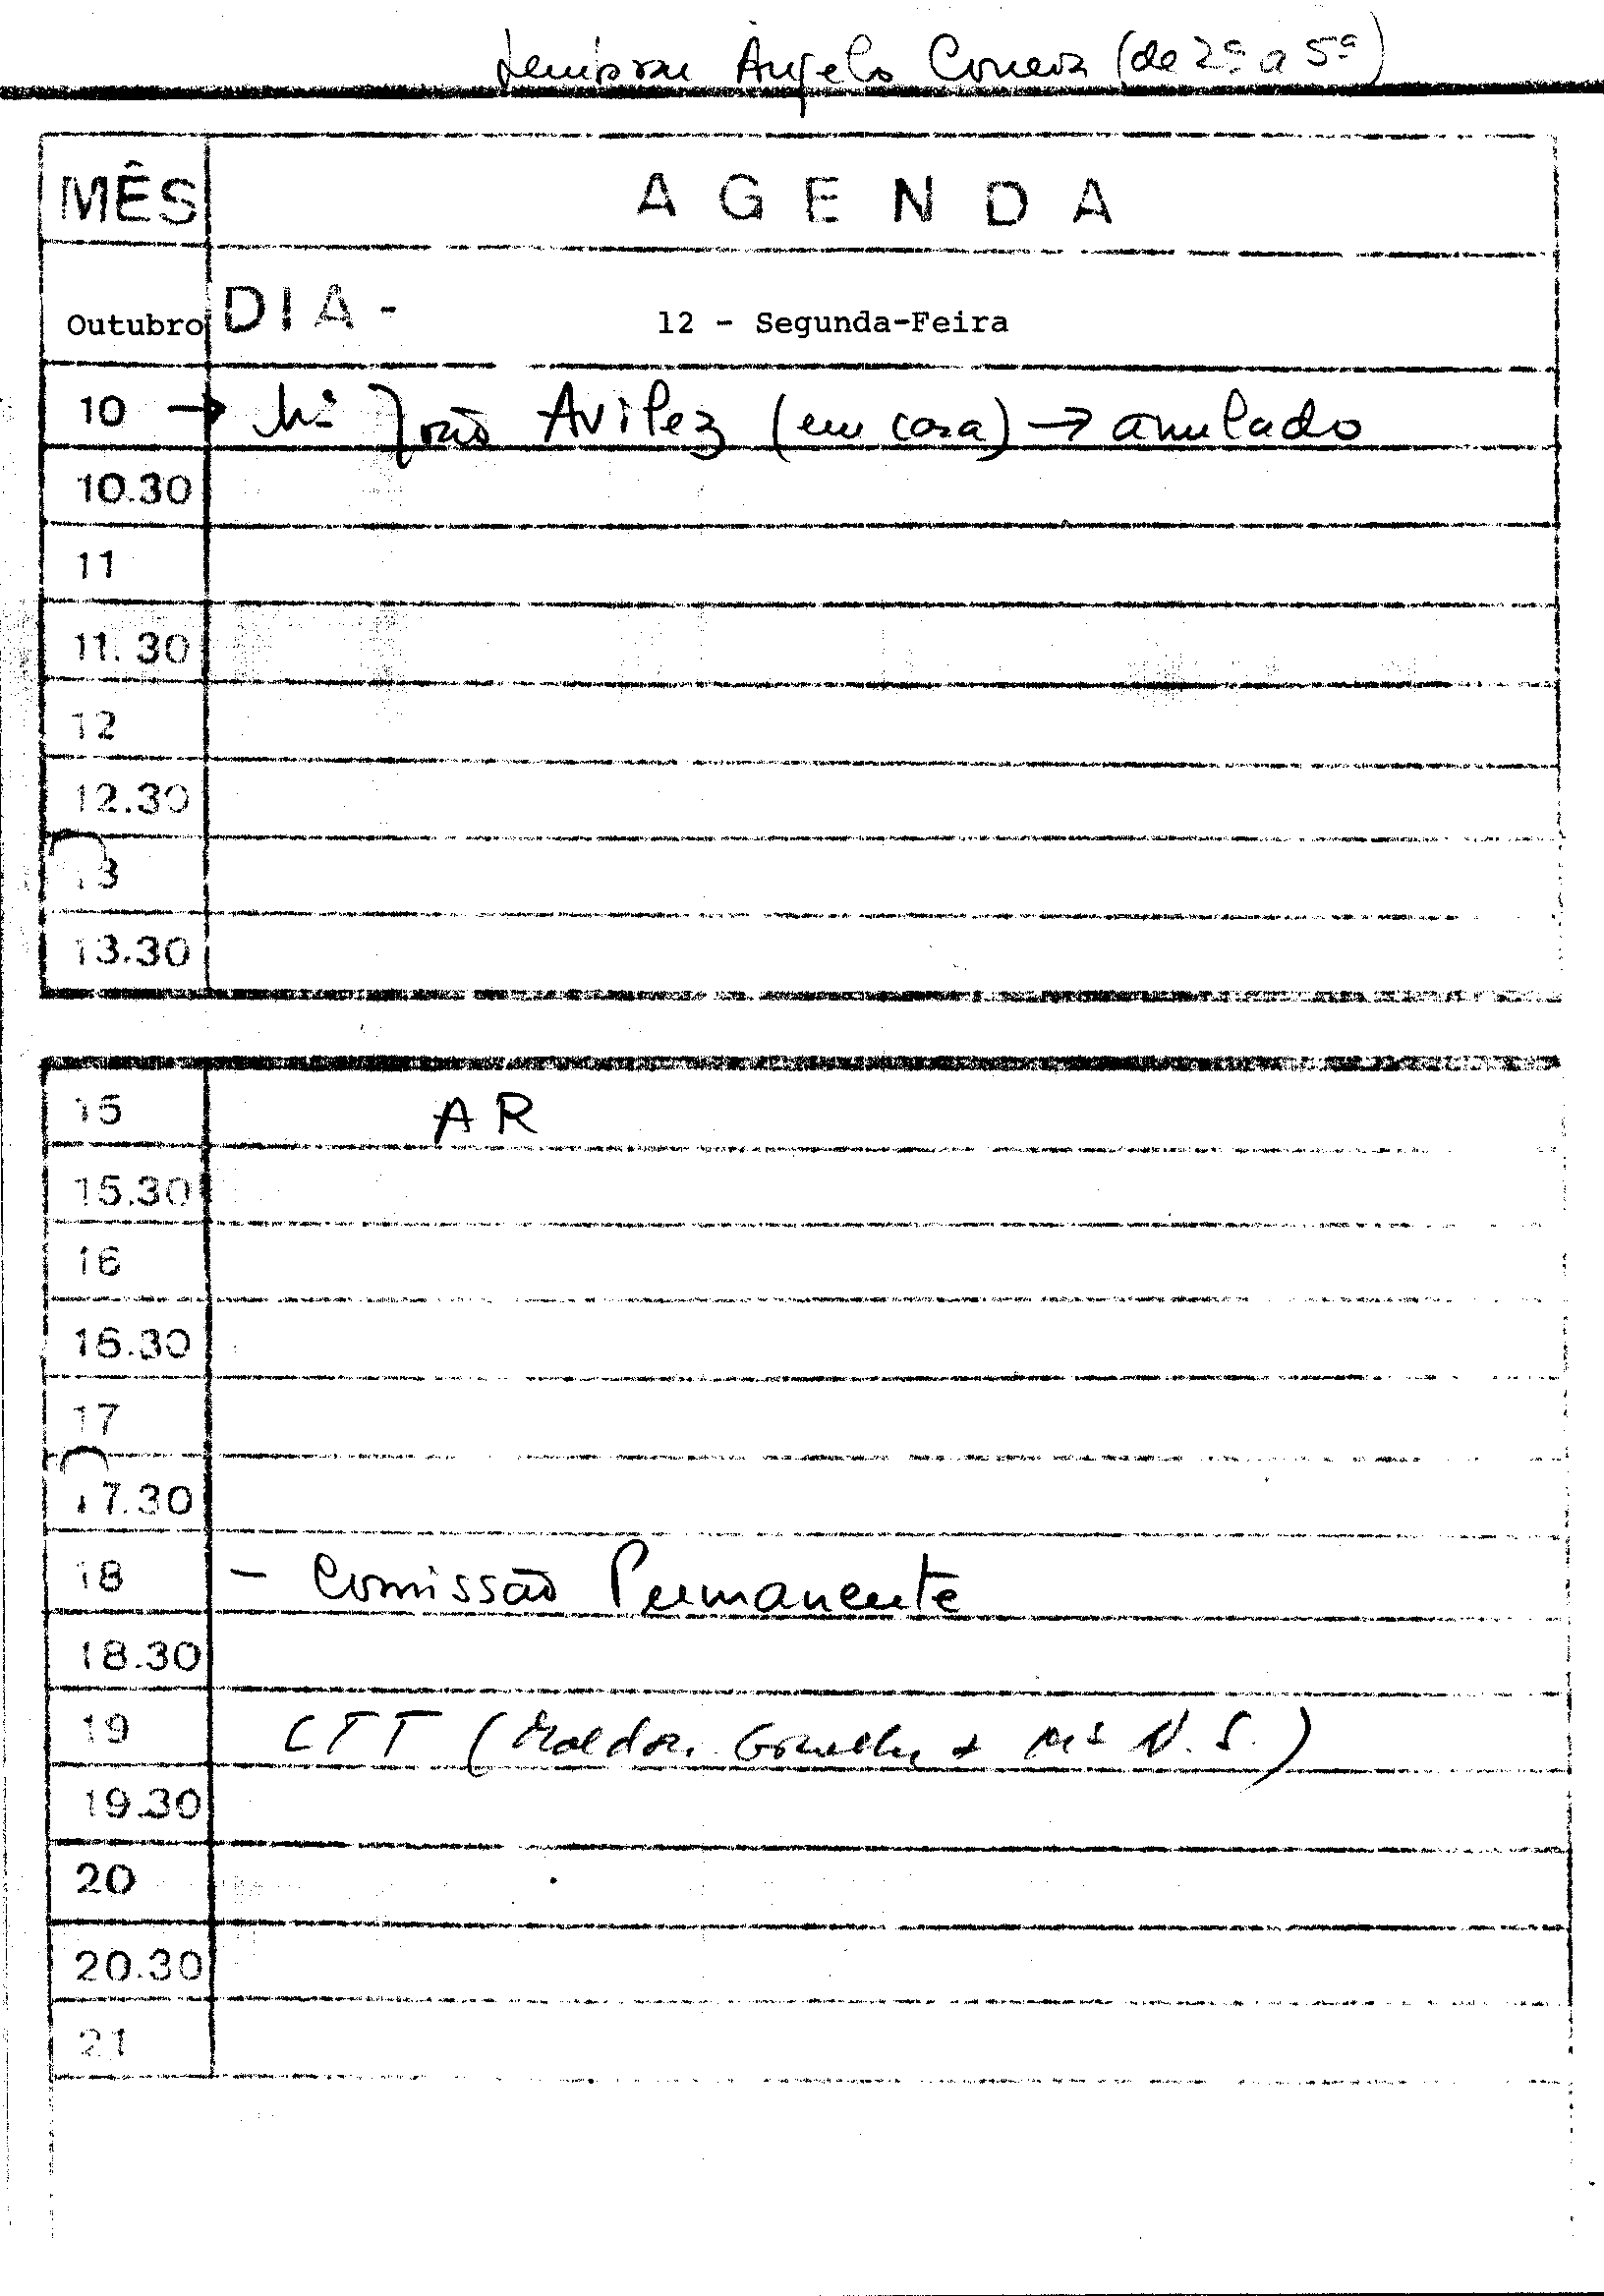 Ângelo Correia (de 2ª a 5ª)
MÊS AGENDA
Outubro DIA - 12 - Segunda-Feira
10 → Mª João Avilez (em casa) → anulado
10.30
11
11.30
12
12.30
13
13.30
15 AR
15.30
16
16.30
17
17.30
18 - Comissão Permanente
18.30
19 CTT ( + Mª N. S.)
19.30
20
20.30
21